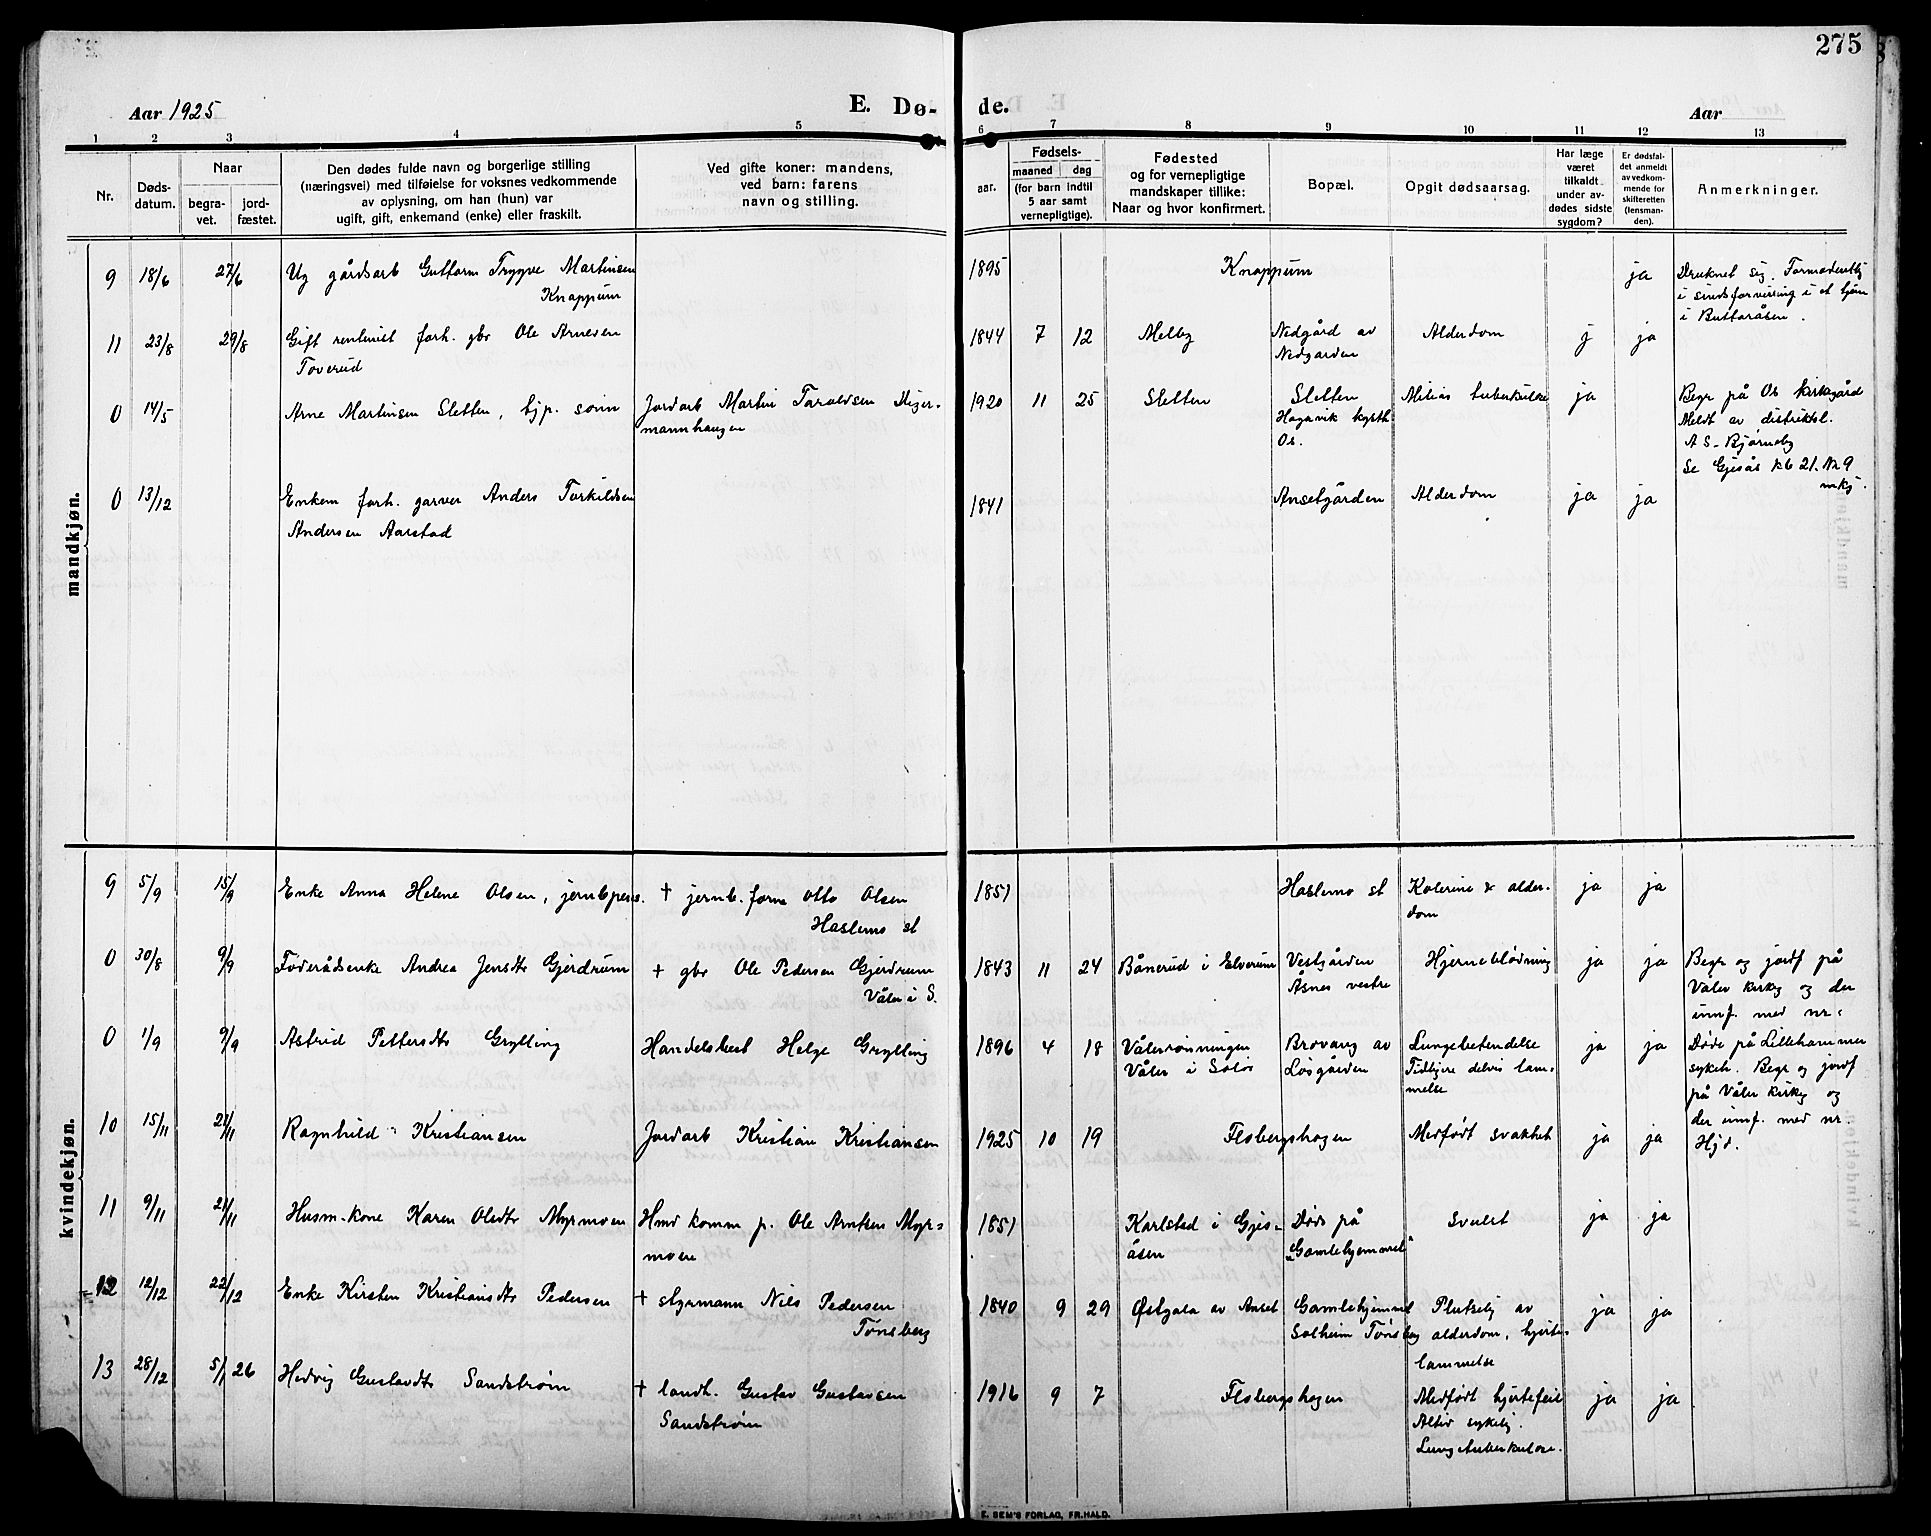 275
Aar 1925
E. Dø-
de.
Aar
1 2 3 4 5 6 7 8 9 10 11 12 13
Nr.
Døds-
datum.
Naar
begra-
vet.
jord-
fæstet.
Den dødes fulde navn og borgerlige stilling
(næringsvei) med tilføielse for voksnes vedkommende
av oplysning, om han (hun) var
ugift, gift, enkemand (enke) eller fraskilt.
Ved gifte koner: mandens,
ved barn: farens
navn og stilling.
Fødsels-
aar.
maaned
dag
(for barn indtil
5 aar samt
vernepligtige).
Fødested
og for vernepligtige
mandskaper tillike:
Naar og hvor konfirmert.
Bopæl.
Opgit dødsaarsag.
Har læge
været
tilkaldt
under av-
dødes sidste
sygdom?
Er dødsfal-
det anmeldt
av vedkom-
mende for
skifteretten
(lensman-
den).
Anmerkninger.
mandkjøn.
9 18/6 27/6 Ug gårdsarb Guttorm Trygve Martinsen
Knappum
1895 Knappum ja
Druknet sig. Formodentlig
i sindsforvirring i et tjern
i Buttaråsen.
11 23/8 29/8 Gift rentenist forh. gbr Ole Arnesen
Toverud
1844 7 12 Melby
Nedgård av
Nedgarden
Alderdom j ja
0 14/5 Arne Martinsen Sletten, hjp. sønn
Jordarb Martin Taraldsen Diger-
mannhaugen
1920 11 25 Sletten
Sletten
Hagavik kysth
Os.
Miliær tuberkulose ja
Begr på Os kirkegård
Meldt av distriktsl.
A S. Bjørneby
Se Gjesås kb 21. nr 9
mkj.
0 13/12 Enkem forh. garver Anders Torkildsen
Andersen Aarstad
1841 Ansetgården Alderdom ja ja
kvindekjøn.
9 5/9 15/9 Enke Anna Helene Olsen, jernbpens.
+ jernb. form Otto Olsen
Haslemo st
1851 Haslemo st
Kolerine & alder-
dom
ja ja
0 30/8 9/9 Føderådsenke Andrea Jensdtr Gjerdrum
+ gbr Ole Pedersen Gjerdrum
Våler i S.
1843 11 24 Bånerud i Elverum
Vestgården
Åsnes vestre
Hjerneblødning ja ja
Begr og jordf på
Våler kirkeg og der
innf. med nr.
0 1/9 9/9 Astrid Pettersdtr Grylling
Handelsbest Helge Grylling
1896 4 18
Vålerrønningen
Våler i Solør
Brovang av
Løsgården
Lungebetendelse
Tidligere delvis lam-
melse
ja ja
Døde på Lillehammer
sykeh. Begr og jordf
på Våler kirkeg og
der innf. med nr.
Hjd.
10 15/11 21/11 Ragnhild Kristiansen
Jordarb Kristian Kristiansen
1925 10 19 Flisbergshagen Medfødt svakhet ja ja
11 9/11 21/11 Husm-kone Karen Olsdtr Myrmoen
Hmd komm p. Ole Arntsen Myr-
moen
1851
Karlstad i Gjes-
åsen
Døde på
"Gamlehjemmet"
Svulst ja ja
12 12/12 22/12 Enke Kirsten Kristiansdtr Pedersen
+ styrmann Nils Pedersen
Tønsberg
1840 9 29 Østgala av Anset
Gamlehjemmet
Solheim Tønsberg
Plutselig av
alderdom, hjerte-
lammelse
ja ja
13 28/12 5/1 26 Hedvig Gustavdtr Sandstrøm
+ landh. Gustav Gustavsen
Sandstrøm
1916 9 7 Flisbergshagen
Medfødt hjertefeil
Altid sykelig.
Lungetuberkulose.
ja ja
E. SEM'S FORLAG, FR.HALD.